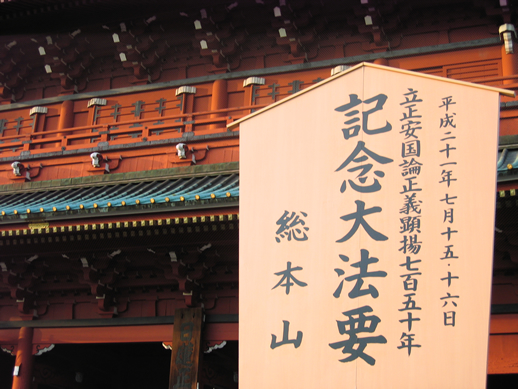 平成二十一年七月十五・十六日
立正安国論正義顕揚七百五十年
記念大法要
総本山